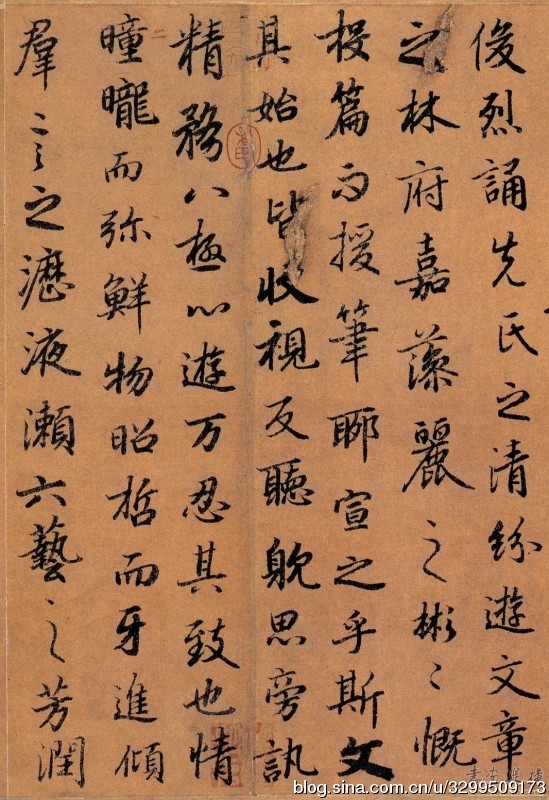 俊烈誦先氏之清紛遊文章
之林府嘉藻麗之彬〻慨
投篇而援筆聊宣之乎斯文
其始也皆收視反聽躭思旁訊
精務八極心遊万忍其致也情
曈曨而弥鮮物昭晢而牙進傾
羣言之瀝液瀨六藝之芳潤
blog.sina.com.cn/u/3299509173